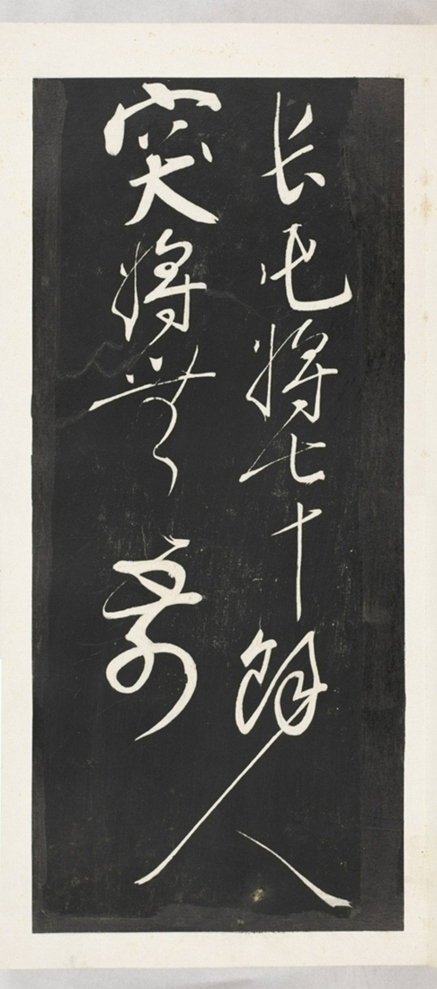 長屯將七十餘人
突將無前